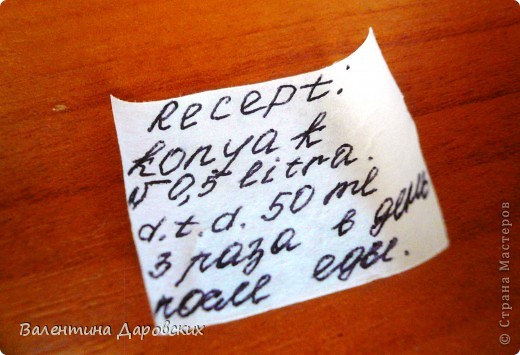 Recept:
konyak
V 0,5 litra.
d.t.d. 50 ml
3 раза в день
после еды.
Валентина Даровских
© Страна Мастеров